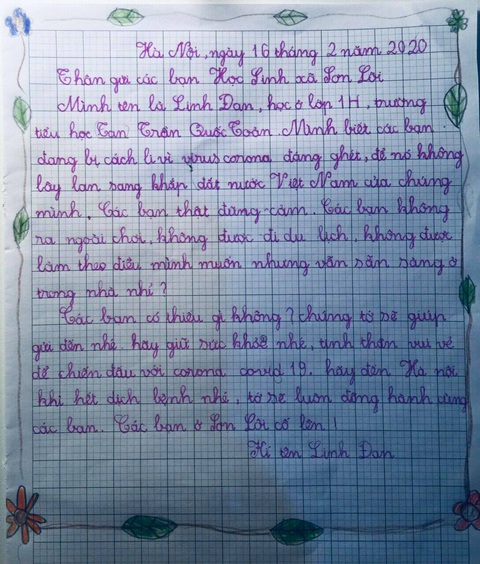 Hà Nội, ngày 16 tháng 2 năm 2020
Thân gửi các bạn Học Sinh xã Sơn Lôi
Mình tên là Linh Đan, học ở lớp 1H, trường
tiểu học Tan Trần Quốc Toản. Mình biết các bạn
đang bị cách li vì virus corona đáng ghét, để nó không
lây lan sang khắp đất nước Việt Nam của chúng
mình. Các bạn thật dũng cảm. Các bạn không
ra ngoài chơi, không được đi du lịch, không được
làm theo điều mình muốn nhưng vẫn sẵn sàng ở
trong nhà nhỉ?
Các bạn có thiếu gì không? chúng tớ sẽ giúp
gửi đến nhé. hãy giữ sức khoẻ nhé, tinh thần vui vẻ
để chiến đấu với corona covid 19. hãy đến Hà nội
khi hết dịch bệnh nhé, tớ sẽ luôn đồng hành cùng
các bạn. Các bạn ở Sơn Lôi cố lên!
Kí tên Linh Đan